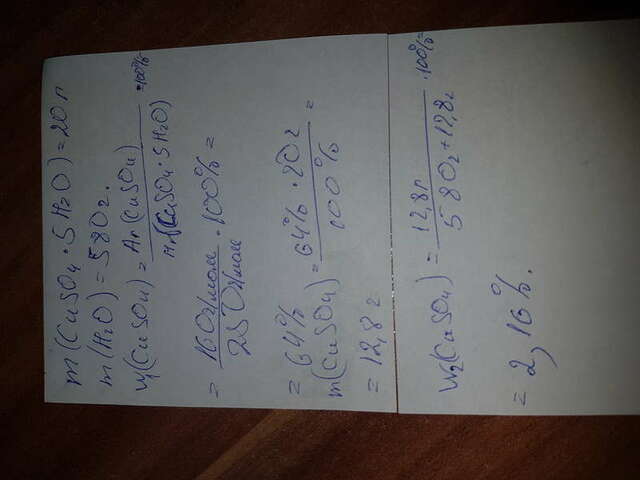 m(CuSO4 · 5H2O) = 20 г
m(H2O) = 580 г.
W1(CuSO4) = Ar(CuSO4) / Mr(CuSO4 · 5H2O) · 100% =
= 160 г/моль / 250 г/моль · 100% =
= 64%
m(CuSO4) = 64% · 20 г / 100% =
= 12,8 г
W2(CuSO4) = 12,8 г / 580 г + 12,8 г · 100% =
= 2,16%.